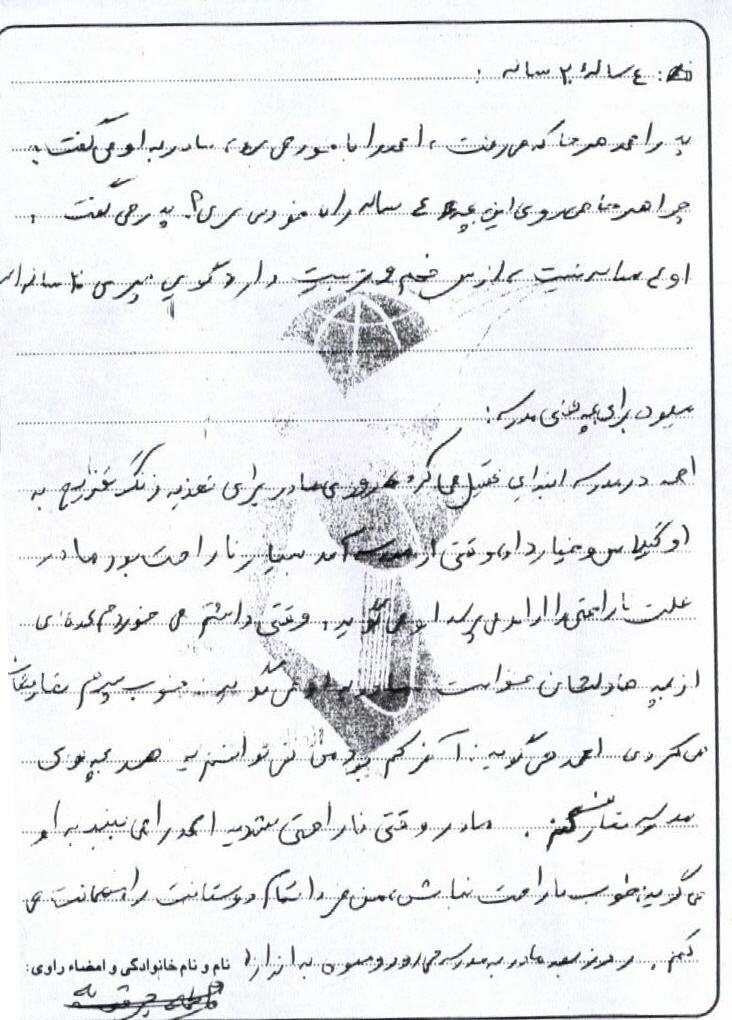 ٤ ساله ٢٠ ساله :
پدر احمد هر جا که می رفت ، احمد را با خود می برد ، مادر به او می گفت :
چرا هر جا می روی این بچه ٤ ساله را با خود می بری؟ پدر می گفت :
او ٤ ساله نیست ، از بس فهم و تربیت دارد گویی پسری ٢٠ ساله است
میوه برای بچه های مدرسه :
احمد در مدرسه ابتدایی تحصیل می کرد روزی مادر برای تغذیه زنگ تفریح به
او گیلاس و خیار داد ، وقتی از مدرسه آمد بسیار ناراحت بود مادر
علت ناراحتی را از او می پرسد او می گوید : وقتی داشتم می خوردم عده ای
از بچه ها دلشان خواست مادر به او می گوید : خوب پسرم تعارفشان
می کردی احمد می گوید : آخر کم بود من نمی توانستم به همه بچه های
مدرسه تعارف کنم . مادر وقتی ناراحتی شدید احمد را می بیند به او
می گوید : خوب ناراحت نباش ، من فردا تمام دوستانت را مهمانت می
کنم . روز بعد مادر به مدرسه می رود و میوه به اندازه
نام و نام خانوادگی و امضاء راوی: